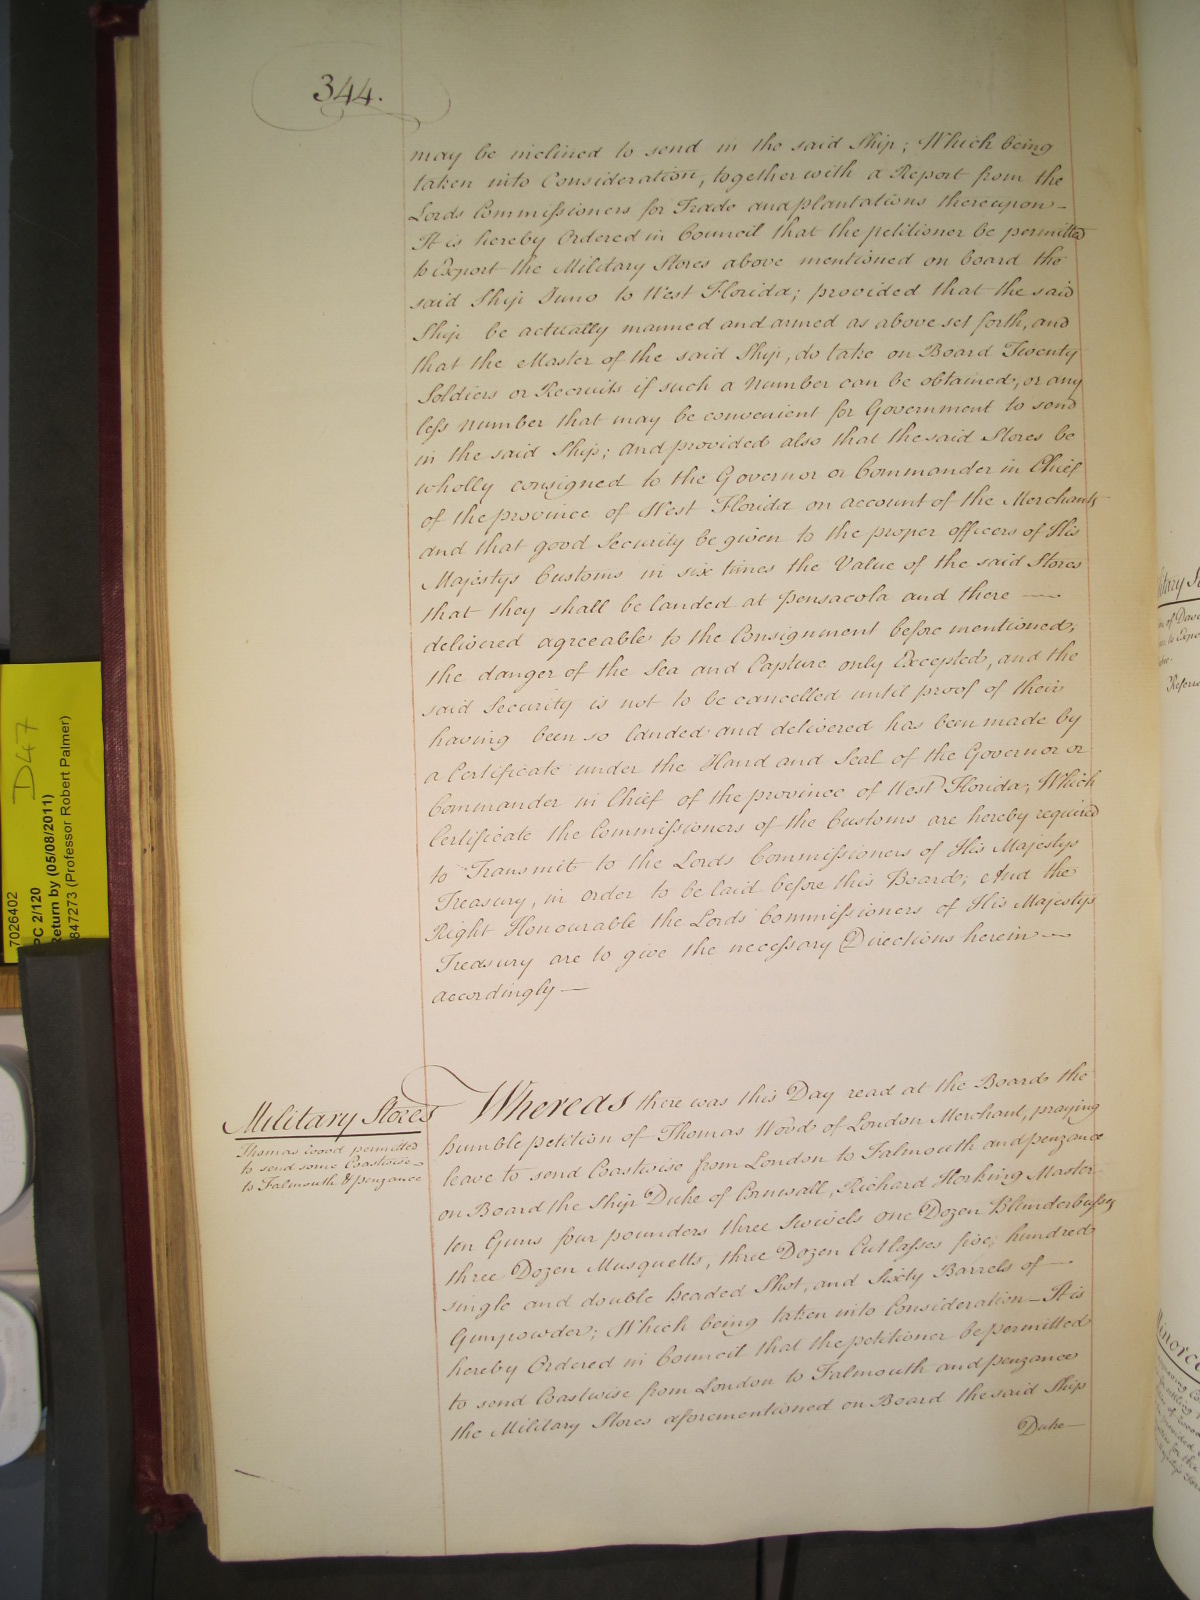 344.
may be inclined to send in the said Ship; Which being
taken into Consideration, together with a Report from the
Lords Commissioners for Trade and plantations thereupon –
It is hereby Ordered in Council that the petitioner be permitted
to Export the Military Stores above mentioned on board the
said Ship Juno to West Florida; provided that the said
Ship be actually manned and armed as above set forth, and
that the Master of the said Ship, do take on Board Twenty
Soldiers or Recruits if such a Number can be obtained, or any
less Number that may be convenient for Government to send
in the said Ship; and provided also that the said Stores be
wholly consigned to the Governor or Commander in Chief
of the province of West Florida on account of the Merchants
and that good Security be given to the proper officers of His
Majestys Customs in six times the Value of the said Stores
that they shall be landed at pensacola and there —
delivered agreeable to the Consignment before mentioned,
the danger of the Sea and Capture only Excepted, and the
said Security is not to be cancelled until proof of their
having been so landed and delivered has been made by
a Certificate under the Hand and Seal of the Governor or
Commander in Chief of the province of West Florida; Which
Certificate the Commissioners of the Customs are hereby required
to Transmit to the Lords Commissioners of His Majestys
Treasury, in order to be laid before this Board; And the
Right Honourable the Lords Commissioners of His Majestys
Treasury are to give the necessary Directions herein —
accordingly —
Military Stores
Thomas Wood permitted
to send some Coastwise
to Falmouth & penzance
Whereas there was this Day read at the Board the
humble petition of Thomas Wood of London Merchant, praying
leave to send Coastwise from London to Falmouth and penzance
on Board the Ship Duke of Cornwall, Richard Hosking Master
ten Guns four pounders three Swivels one Dozen Blunderbusses
three Dozen Musquetts, three Dozen Cutlasses five hundred
single and double headed Shot, and Sixty Barrels of —
Gunpowder; Which being taken into Consideration – It is
hereby Ordered in Council that the petitioner be permitted
to send Coastwise from London to Falmouth and penzance
the Military Stores aforementioned on Board the said Ship
Duke —
7026402
D47
PC 2/120
Return by (05/08/2011)
847273 (Professor Robert Palmer)